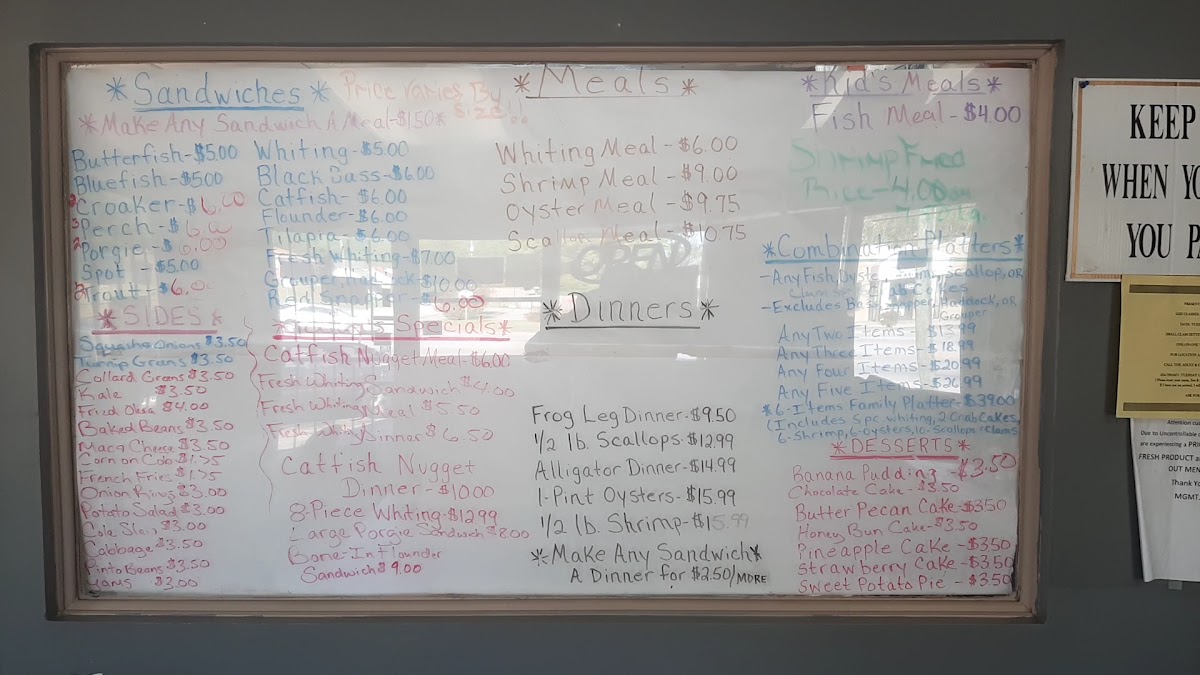 *Sandwiches*
Price Varies By
Size!!
*Make Any Sandwich A Meal-$1.50*
Butterfish-$5.00
Bluefish-$5.00
Croaker-$6.00
Perch-$6.00
Porgie-$6.00
Spot -$5.00
Trout-$6.00
Whiting-$5.00
Black Bass-$6.00
Catfish-$6.00
Flounder-$6.00
Tilapia-$6.00
Fresh Whiting-$7.00
Grouper, Haddock-$10.00
Red Snapper-$6.00
*SIDES*
Squash&Onions $3.50
Turnip Greens $3.50
Collard Greens $3.50
Kale $3.50
Fried Okra $4.00
Baked Beans $3.50
Mac&Cheese $3.50
Corn on Cob $1.75
French Fries $1.75
Onion Rings $3.00
Potato Salad $3.00
Cole Slaw $3.00
Cabbage $3.50
Pinto Beans $3.50
Yams $3.00
Specials*
Catfish Nugget Meal-$6.00
Fresh Whiting Sandwich $4.00
Fresh Whiting Meal $5.50
Fresh Whiting Dinner $6.50
Catfish Nugget
Dinner-$10.00
8-Piece Whiting-$12.99
Large Porgie Sandwich $8.00
Bone-In Flounder
Sandwich $9.00
*Meals*
Whiting Meal-$6.00
Shrimp Meal-$9.00
Oyster Meal-$9.75
Scallop Meal-$10.75
OPEN
*Dinners*
Frog Leg Dinner-$9.50
1/2 lb. Scallops-$12.99
Alligator Dinner-$14.99
1-Pint Oysters-$15.99
1/2 lb. Shrimp-$15.99
*Make Any Sandwich*
A Dinner for $2.50/MORE
*Kid's Meals*
Fish Meal-$4.00
Shrimp Fried
Rice-4.00
*Combination Platters*
-Any Fish, Oyster, Shrimp, Scallop, OR
Crab Cakes
-Excludes Bass, Snapper, Haddock, OR
Grouper
Any Two Items-$13.99
Any Three Items-$18.99
Any Four Items-$20.99
Any Five Items-$26.99
$6-Items Family Platter-$39.00
(Includes 5pc. whiting, 2 Crab Cakes,
6-Shrimp, 6-oysters, 10-Scallops & Clams
*DESSERTS*
Banana Pudding-$3.50
Chocolate Cake-$3.50
Butter Pecan Cake-$3.50
Honey Bun Cake-$3.50
Pineapple Cake-$3.50
Strawberry Cake-$3.50
Sweet Potato Pie-$3.50
KEEP
WHEN YO
YOU P
Attention cu
Due to Uncontrollable
are experiencing a PRI
FRESH PRODUCT a
OUT MEN
Thank Yo
MGMT.